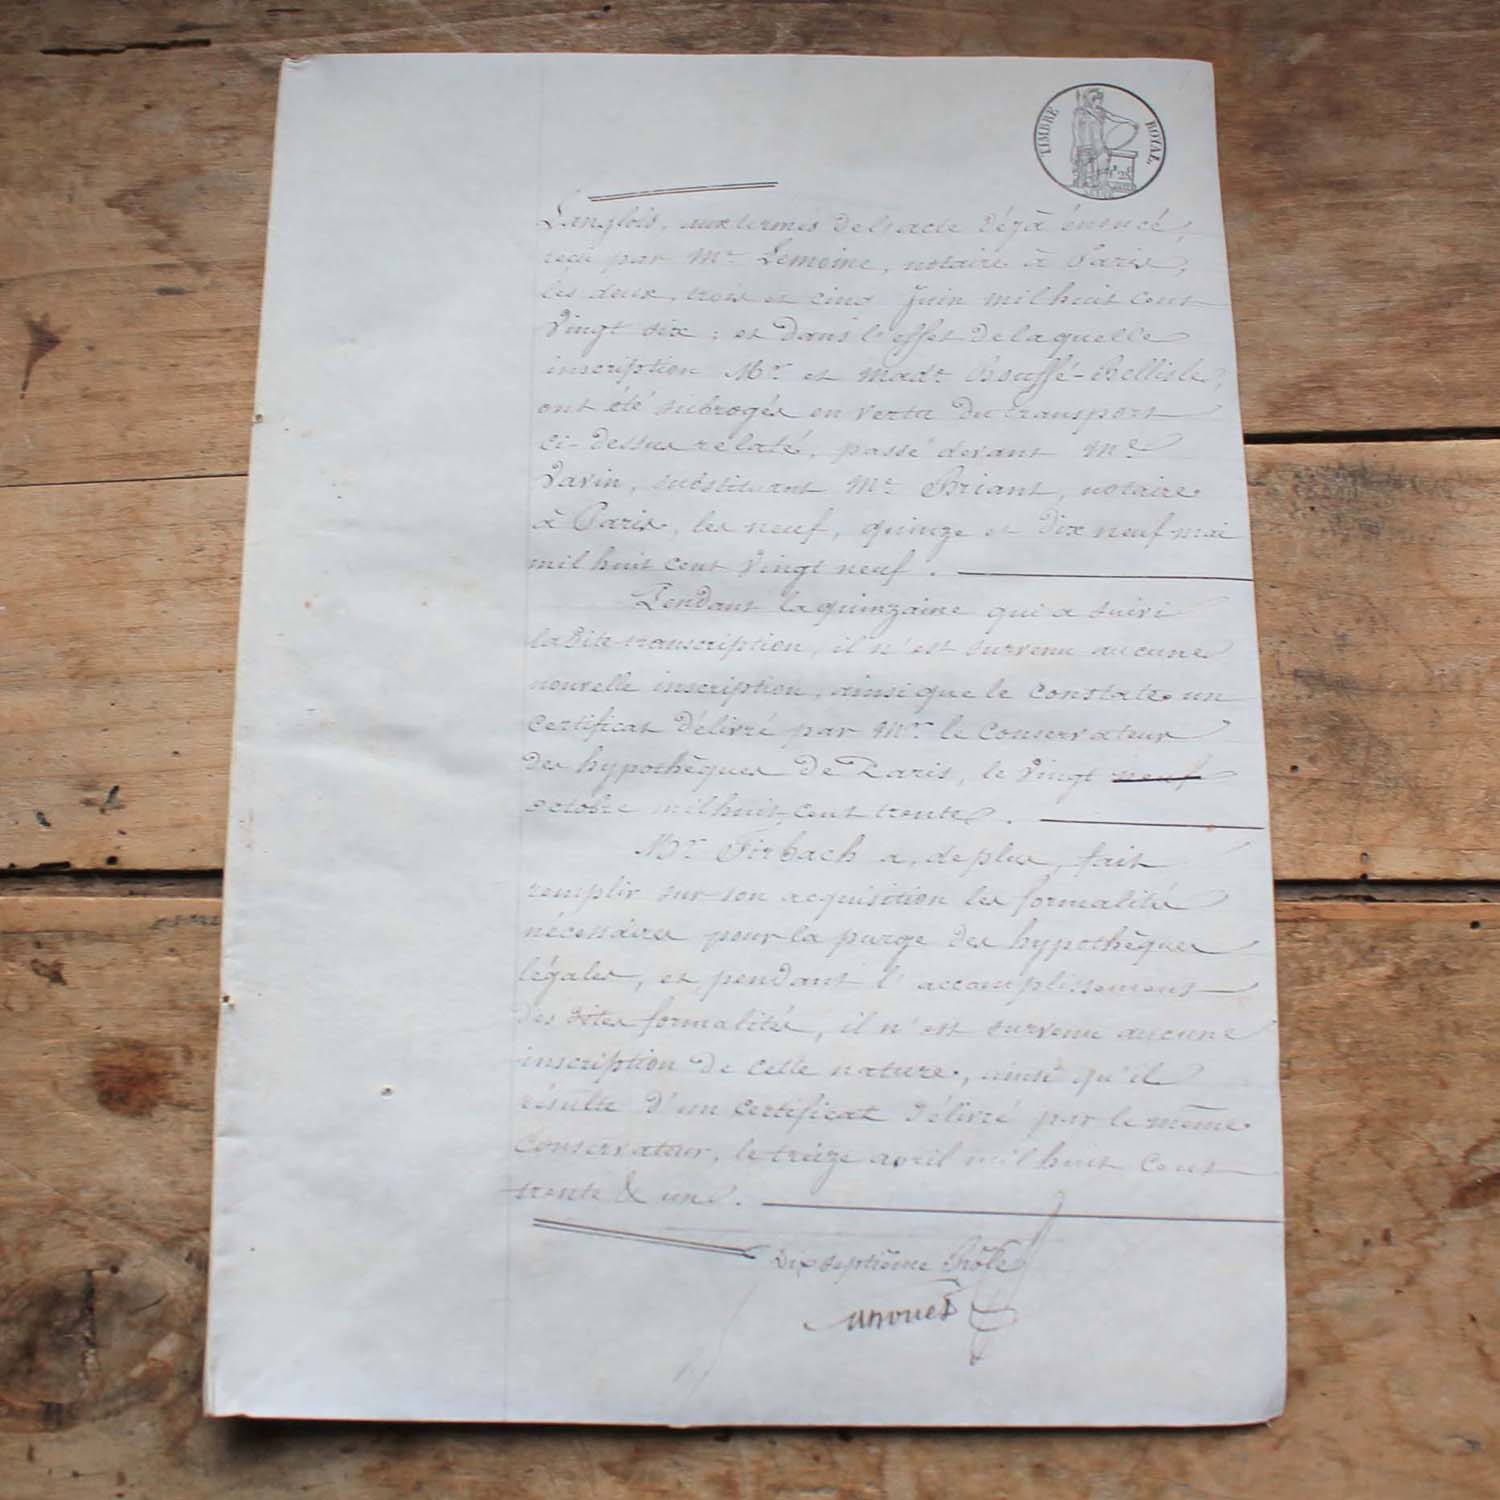 TIMBRE ROYAL
Langlois, aux termes de l'acte déjà énoncé,
reçu par Mᵉ Lemoine, notaire à Paris,
les deux, trois et cinq Juin mil huit cent
vingt six ; et dans l'effet de laquelle
inscription Mʳ et Madᵉ Bouffé-Bellisle,
ont été subrogés en vertu du transport
ci-dessus relaté, passé devant Mᵉ
Vavin, substituant Mᵉ Briant, notaire
à Paris, les neuf, quinze et dix neuf mai
mil huit cent vingt neuf.
Pendant la quinzaine qui a suivi
la dite transcription, il n'est survenu aucune
nouvelle inscription, ainsi que le constate un
certificat délivré par Mʳ le Conservateur
des hypothèques de Paris, le vingt neuf
octobre mil huit cent trente.
Mʳ Firbach a, de plus, fait
remplir sur son acquisition les formalités
nécessaires pour la purge des hypothèques
légales, et pendant l'accomplissement
des dites formalités, il n'est survenu aucune
inscription de cette nature, ainsi qu'il
résulte d'un certificat délivré par le même
Conservateur, le treize avril mil huit cent
trente & un.
Dix septième Rôle